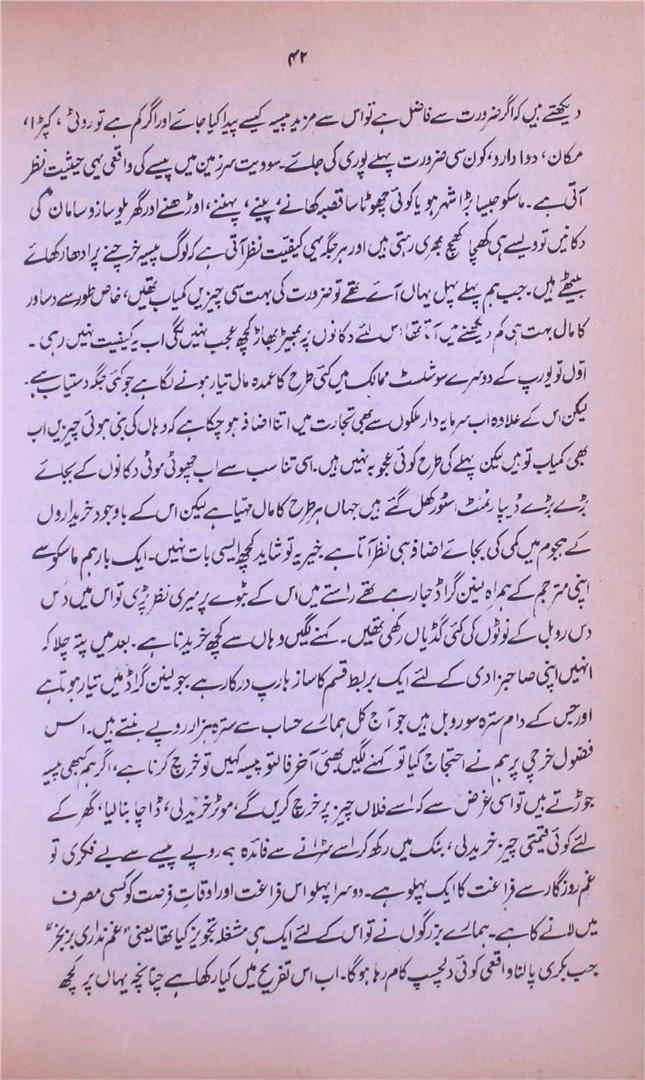 ۴۲
دیکھتے ہیں کہ اگر ضرورت سے فاضل ہے تو اس سے مزید پیسہ کیسے پیدا کیا جائے اور اگر کم ہے تو روٹی ، کپڑا ،
مکان ، دوا دارد ، کون سی ضرورت پہلے پوری کی جائے ۔ سوویت سرزمین میں پیسے کی واقعی یہی حیثیت نظر
آتی ہے ۔ ماسکو جیسا بڑا شہر ہو یا کوئی چھوٹا سا قصبہ کھانے ، پینے ، پہننے ، اوڑھنے اور گھریلو ساز و سامان کی
دکانیں تو ویسے ہی کھچا کھچ بھری رہتی ہیں اور ہر جگہ یہی کیفیت نظر آتی ہے کہ لوگ پیسہ خرچنے پر ادھار کھائے
بیٹھے ہیں ۔ جب ہم پہلے پہل یہاں آئے تھے تو ضرورت کی بہت سی چیزیں کمیاب تھیں ، خاص طور سے دساور
کا مال بہت ہی کم دیکھنے میں آتا تھا اس لئے دکانوں پر بھیڑ بھاڑ کچھ عجب نہیں لگی اب یہ کیفیت نہیں رہی ۔
اوّل تو یورپ کے دوسرے سوشلسٹ ممالک میں کئی طرح کا عمدہ مال تیار ہونے لگا ہے جو کئی جگہ دستیاب ہے ۔
لیکن اس کے علاوہ اب سرمایہ دار ملکوں سے بھی تجارت میں اتنا اضافہ ہو چکا ہے کہ وہاں کی بنی ہوئی چیزیں اب
بھی کمیاب تو ہیں لیکن پہلے کی طرح کوئی عجوبہ نہیں ہیں ۔ اسی تناسب سے اب چھوٹی موٹی دکانوں کے بجائے
بڑے بڑے ڈیپارٹمنٹ اسٹور کھل گئے ہیں جہاں ہر طرح کا مال مہیا ہے لیکن اس کے باوجود خریداروں
کے ہجوم میں کمی کی بجائے اضافہ ہی نظر آتا ہے خیر یہ تو شاید کچھ ایسی بات نہیں ۔ ایک بار ہم ماسکو سے
اپنی مترجم کے ہمراہ لینن گراڈ جا رہے تھے راستے میں اس کے بٹوے پر میری نظر پڑی تو اس میں دس
دس روبل کے نوٹوں کی کئی گڈیاں رکھی تھیں ۔ کہنے لگیں وہاں سے کچھ خریدنا ہے ۔ بعد میں پتہ چلا کہ
انہیں اپنی صاحبزادی کے لئے ایک بربط قسم کا ساز ہارپ درکار ہے جو لینن گراڈ میں تیار ہوتا ہے
اور جس کے دام سترہ سو روبل ہیں جو آج کل ہمارے حساب سے سترہ ہزار روپے بنتے ہیں ۔ اس
فضول خرچی پر ہم نے احتجاج کیا تو کہنے لگیں بھئی آخر فالتو پیسہ کہیں تو خرچ کرنا ہے ، اگر ہم کبھی پیسہ
جوڑتے ہیں تو اسی غرض سے کہ اسے فلاں چیز پر خرچ کریں گے ، موٹر خریدلی ، ڈاچا بنا لیا ، گھر کے
لئے کوئی قیمتی چیز خریدلی ، بنک میں رکھ کر اسے سڑانے سے فائدہ ؟ روپے پیسے سے بے فکری تو
غمِ روزگار سے فراغت کا ایک پہلو ہے ۔ دوسرا پہلو اس فراغت اور اوقاتِ فرصت کو کسی مصرف
میں لانے کا ہے ۔ ہمارے بزرگوں نے تو اس کے لئے ایک ہی مشغلہ تجویز کیا تھا یعنی "غم نداری بز بخر"
جب بکری پالنا واقعی کوئی دلچسپ کام رہا ہوگا ۔ اب اس تفریح میں کیا رکھا ہے چنانچہ یہاں پر کچھ